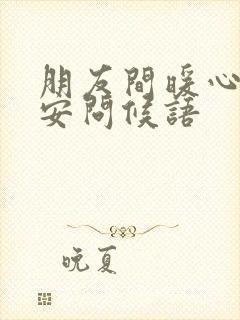 朋友間暖心
安問候語
晚夏